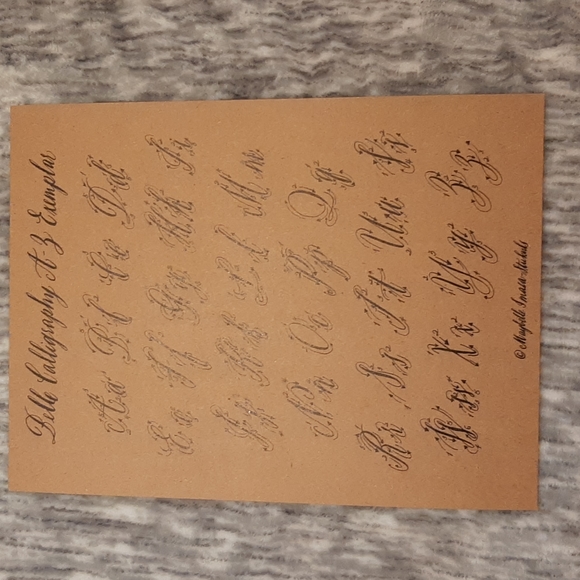 Belle Calligraphy A-Z Exemplar
Aa Bb Cc Dd
Ee Ff Gg Hh Ii
Jj Kk Ll Mm
Nn Oo Pp Qq
Rr Ss Tt Uu Vv
Ww Xx Yy Zz
© Maybelle Imasa-Stukuls